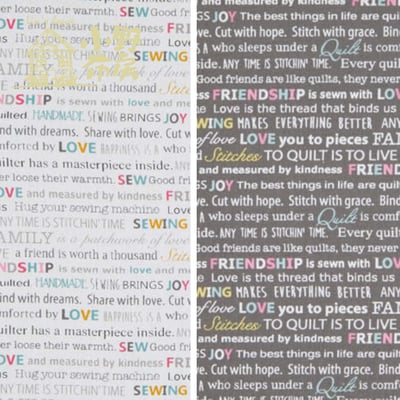 er loose their warmth. SEW Good fri
LOVE and measured by kindness FR
Hug your sewing machine
ANY TIME IS STITCHIN' TIME SEWING
FAMILY
a friend is worth a thousand Stitches
ENDSHIP is sewn with love and
uilted HANDMADE. SEWING BRINGS JOY
nd with dreams. Share with love. Cut w
mforted by LOVE HAPPINESS IS A who
uilter has a masterpiece inside. ANY
er loose their warmth. SEW Good frie
LOVE and measured by kindness FRI
S Hug your sewing machine. Quilt yo
ANY TIME IS STITCHIN' TIME SEWING
FAMILY is a patchwork of love
a friend is worth a thousand Stitches
ENDSHIP is sewn with love and
uilted HANDMADE. SEWING BRINGS JOY
nd with dreams. Share with love. Cut w
mforted by LOVE HAPPINESS IS A who
uilter has a masterpiece inside. ANY
er loose their warmth. SEW Good frie
LOVE and measured by kindness FRI
S Hug your sewing machine. Quilt yo
ANY TIME IS STITCHIN' TIME SEWING
and measured by kindness FRIEND
GS JOY The best things in life are quilt
Cut with hope. Stitch with grace. Bind
A who sleeps under a Quilt is comfor
ANY TIME IS STITCHIN' TIME. Every quilt
Good friends are like quilts, they never l
FRIENDSHIP is sewn with LOV
Love is the thread that binds us
WING MAKES EVERYTHING BETTER ANY
of love LOVE you to pieces FAMIL
Stitches TO QUILT IS TO LIVE
and measured by kindness FRIEND
GS JOY The best things in life are quilt
Cut with hope. Stitch with grace. Bind
A who sleeps under a Quilt is comfor
ANY TIME IS STITCHIN' TIME. Every quilt
Good friends are like quilts, they never
FRIENDSHIP is sewn with LOV
Love is the thread that binds us
WING MAKES EVERYTHING BETTER ANY
of love LOVE you to pieces FAMIL
Stitches TO QUILT IS TO LIVE
and measured by kindness FRIEN
GS JOY The best things in life are quilt
Cut with hope. Stitch with grace. Bind
A who sleeps under a Quilt is comfor